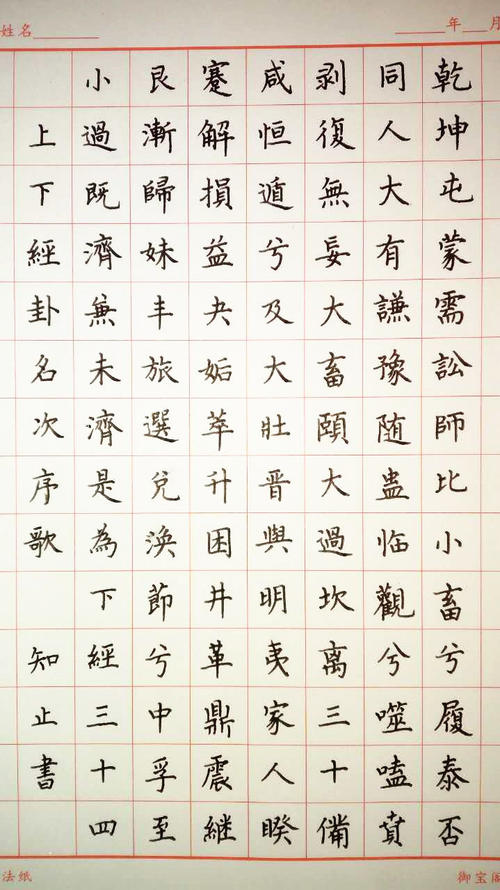 姓名 年 月
乾坤屯蒙需訟師比小畜兮履泰否
同人大有謙豫随蛊临觀兮噬嗑賁
剥復無妄大畜頤大過坎离三十備
咸恒遁兮及大壯晋與明夷家人睽
蹇解損益夬姤萃升困井革鼎震継
艮漸歸妹丰旅選兌渙節兮中孚至
小過既濟兼未濟是為下經三十四
上下經卦名次序歌 知止書
法纸 御宝阁